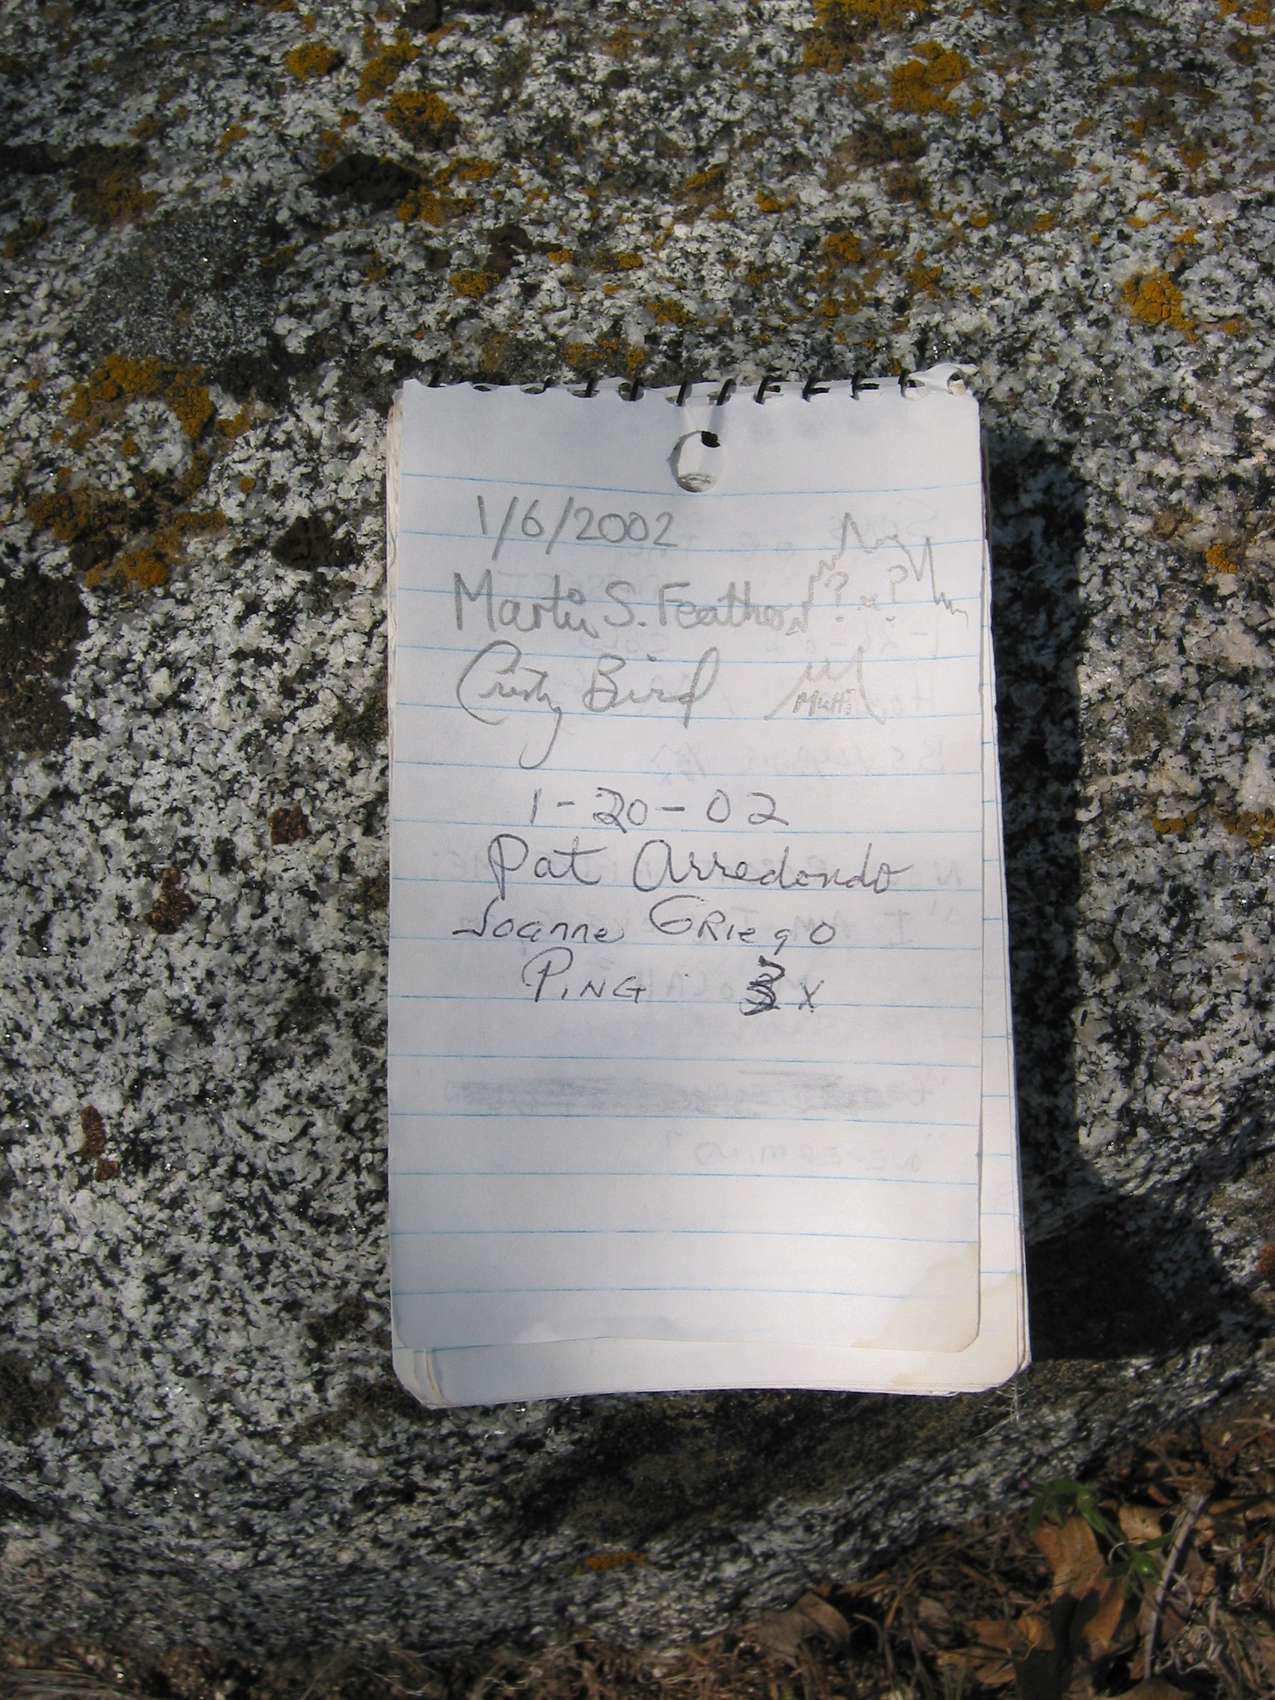 1/6/2002
Martin S. Feather ? ?
Cristy Bird Mutt's
1-20-02
Pat Arredondo
Joanne GRiego
PiNG 3 x